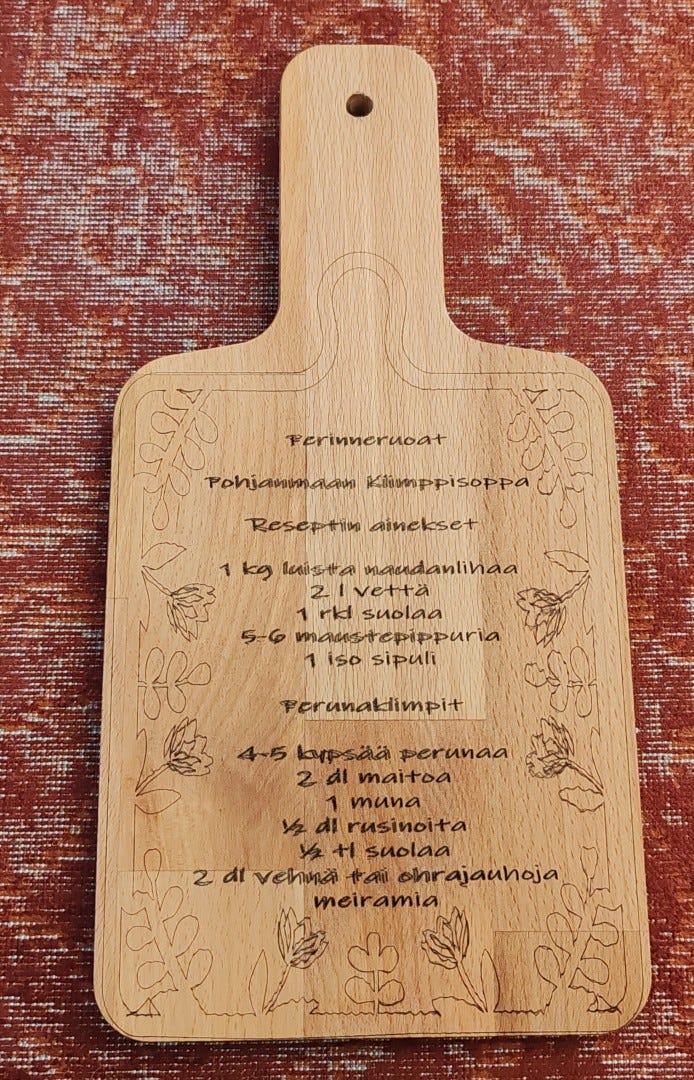 Perinneruoat
Pohjanmaan Klimppisoppa
Reseptin ainekset
1 kg luista naudanlihaa
2 l vettä
1 rkl suolaa
5-6 maustepippuria
1 iso sipuli
Perunaklimpit
4-5 kypsää perunaa
2 dl maitoa
1 muna
½ dl rusinoita
½ tl suolaa
2 dl vehnä tai ohrajauhoja
meiramia